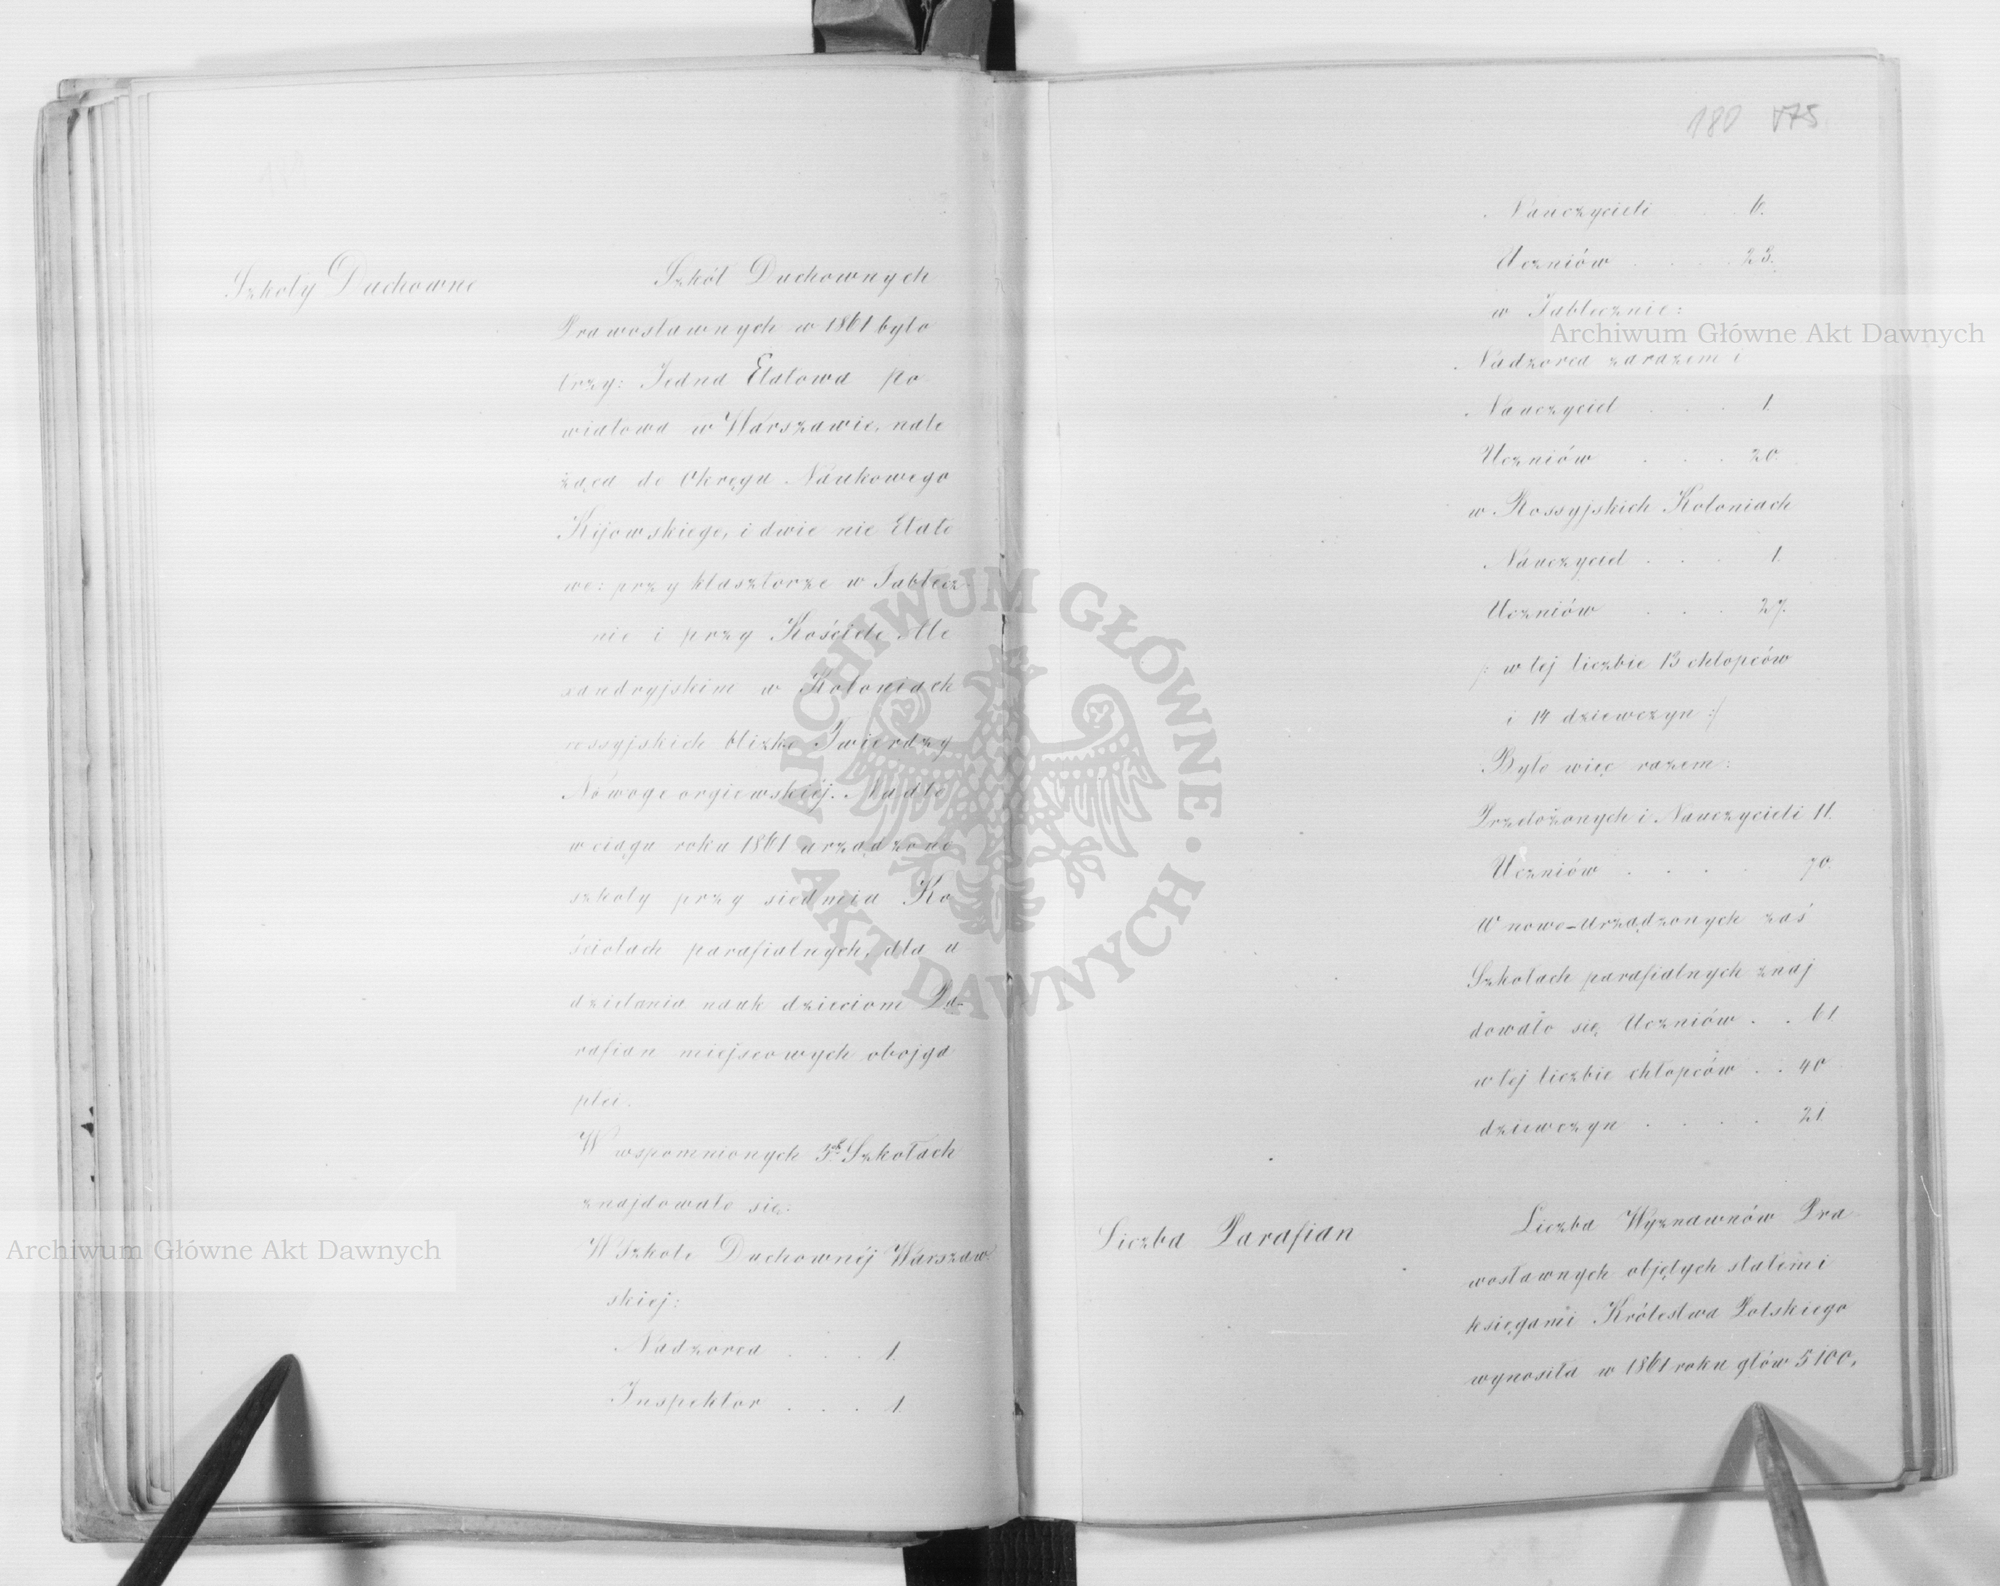 Szkoły Duchowne
Szkół Duchownych
Prawosławnych w 1861 było
trzy: Jedna Etatowa po
wiatowa w Warszawie, nale
żąca do Okręgu Naukowego
Kijowskiego, i dwie nie Etato
we: przy klasztorze w Jabłecz
nie i przy Kościele Ale
xandryjskim w Koloniach
rossyjskich blizko Twierdzy
Nowogeorgiewskiéj. Nadto
w ciągu roku 1861 urządzono
szkoły przy siedmiu Ko
ściołach parafialnych, dla u
dzielania nauk dzieciom Pa-
rafian miejscowych obojga
płci.
W wspomnionych 3ch Szkołach
znajdowało się:
W Szkole Duchownéj Warszaw
skiej:
Nadzorca . . . 1.
Inspektor . . . 1.
180 175
Nauczycieli . . 6.
Uczniów . . . . 23.
w Jabłecznie:
Nadzorca zarazem i
Nauczyciel . . . 1.
Uczniów . . . 20.
w Rossyjskich Koloniach
Nauczyciel . . . 1.
Uczniów . . . 27.
/: w tej liczbie 13 chłopców
i 14 dziewczyn :/
Było więc razem:
Przełożonych i Nauczycieli 11.
Uczniów . . . . 70.
W nowo-urządzonych zaś
Szkołach parafialnych znaj
dowało się Uczniów . . 61
w tej liczbie chłopców . . 40
dziewczyn . . . . 21.
Liczba Parafian
Liczba Wyznawców Pra
wosławnych objętych stałemi
księgami Królestwa Polskiego
wynosiła w 1861 roku głów 5100,
Archiwum Główne Akt Dawnych
Archiwum Główne Akt Dawnych
ARCHIWUM GŁÓWNE · AKT DAWNYCH ·